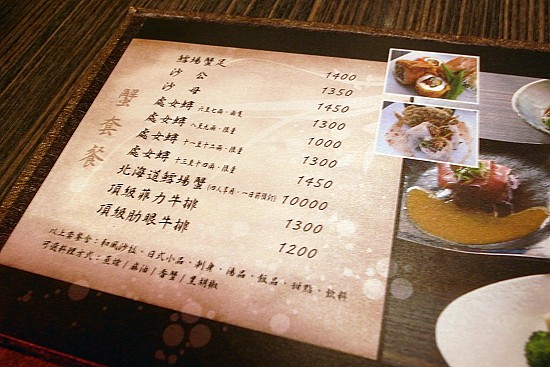 蟹套餐
鱈場蟹足 1400
沙公 1350
沙母 1450
處女蟳 六至七兩·兩隻 1300
處女蟳 八至九兩·限量 1000
處女蟳 十一至十二兩·限量 1300
處女蟳 十三至十四兩·限量 1450
北海道鱈場蟹 (四人享用·一日前預訂) 10000
頂級菲力牛排 1300
頂級肋眼牛排 1200
以上套餐含:和風沙拉·日式小品·刺身·湯品·飯品·甜點·飲料
可選料理方式:蒸燴/麻油/香蟹/黑胡椒